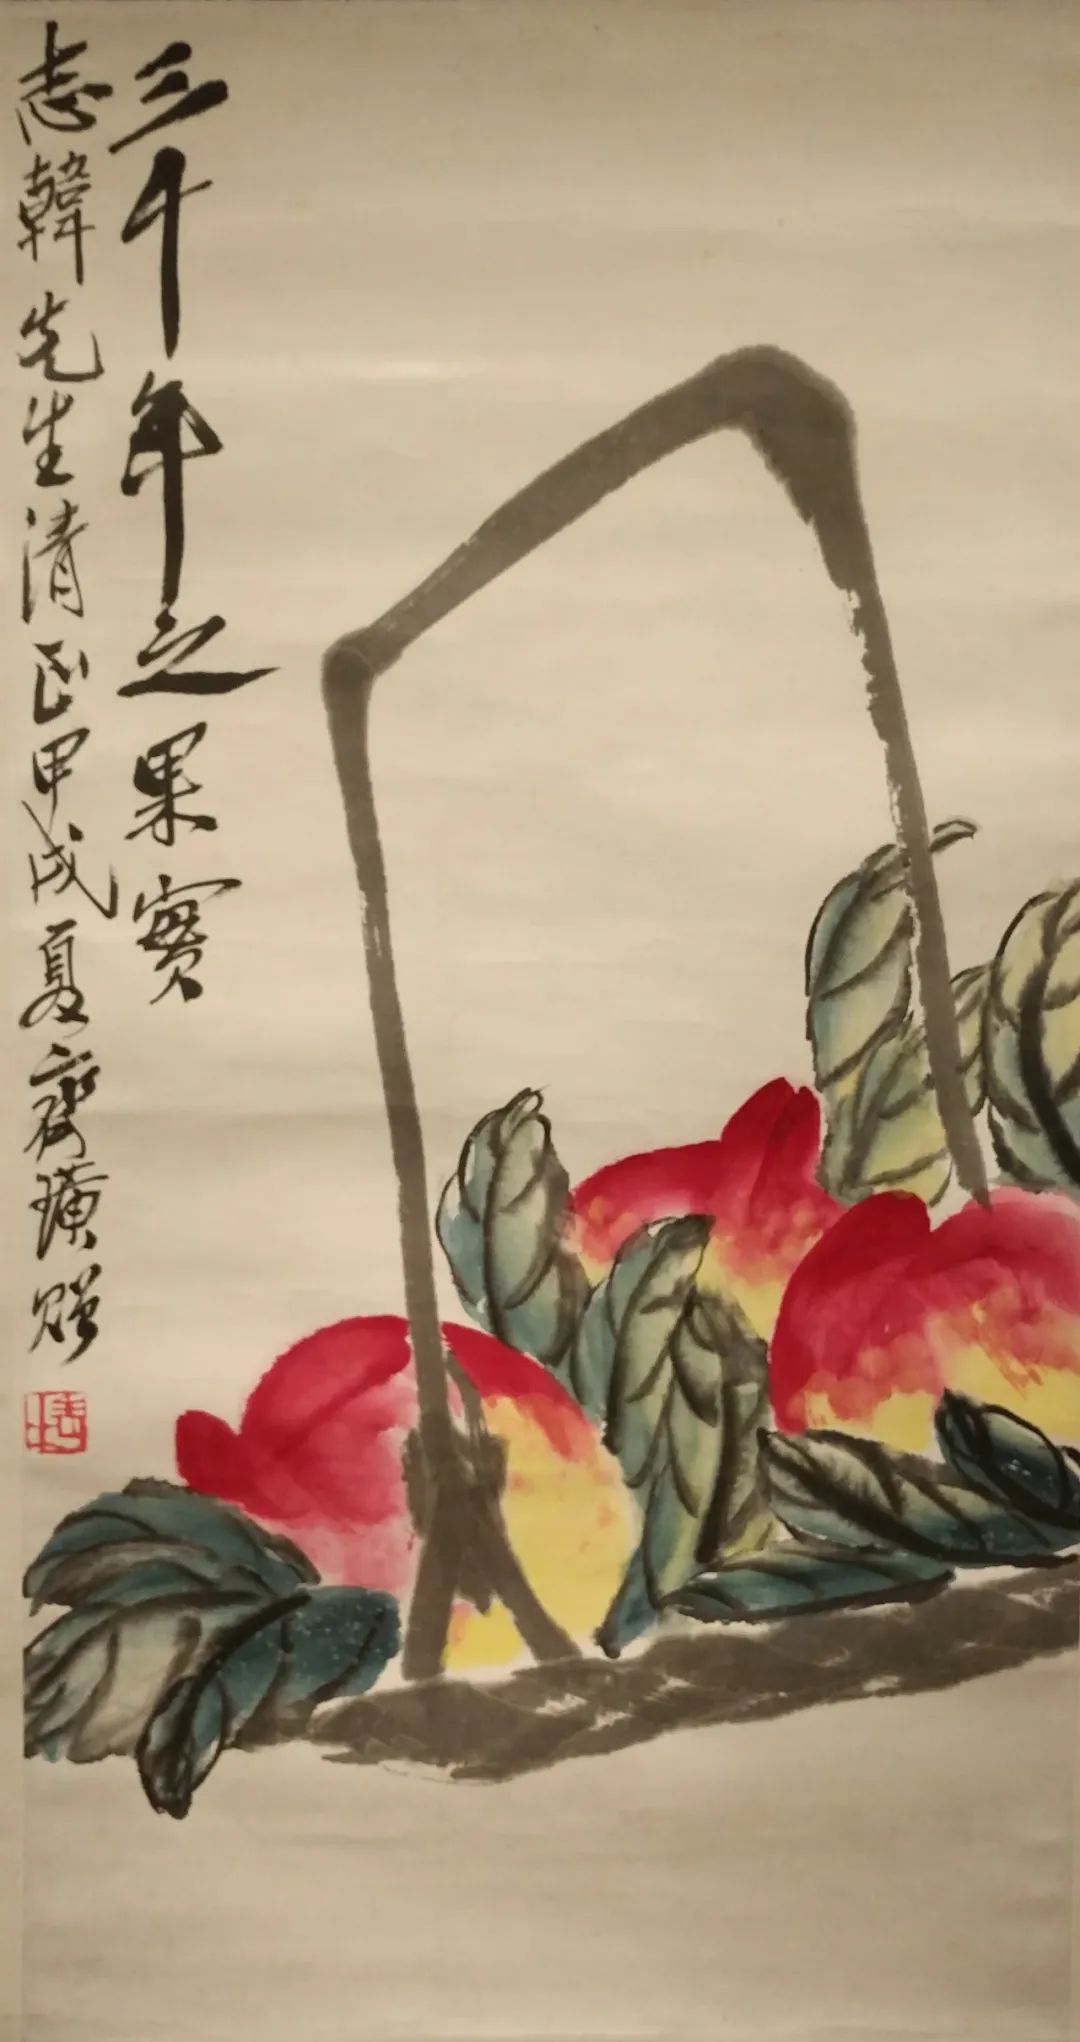 三千年之果實
志韓先生清正甲戌夏齊璜贈